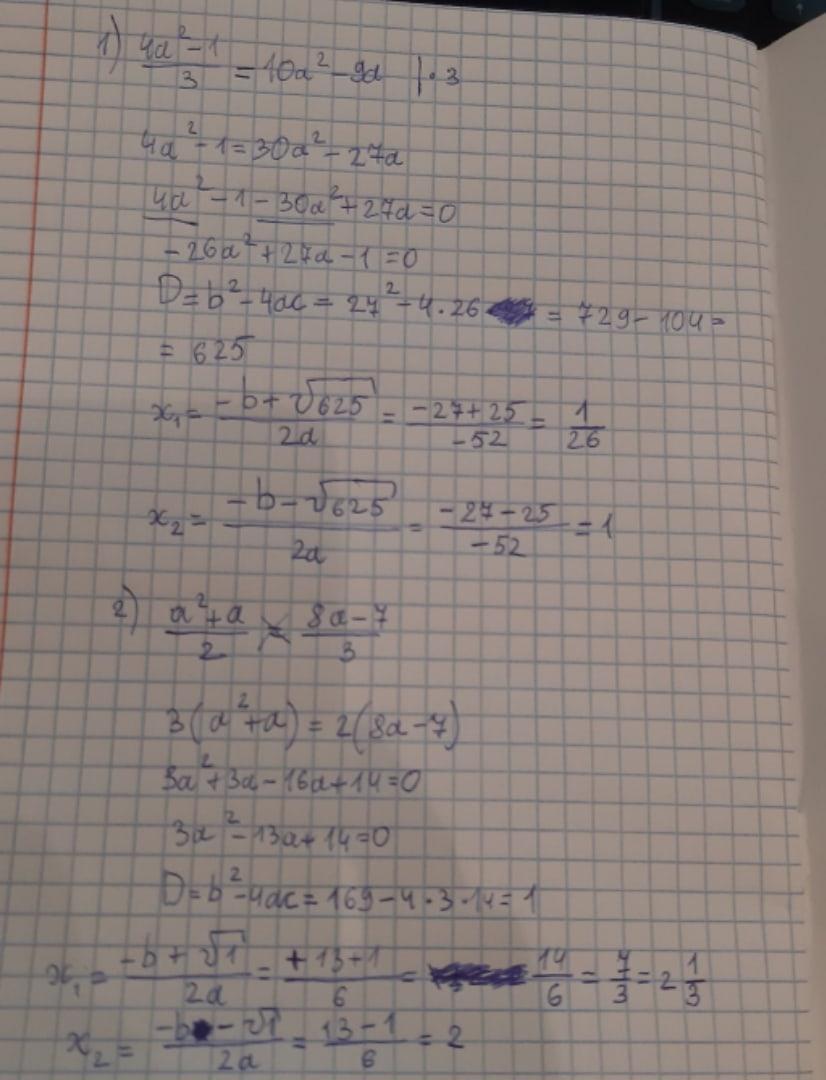 1) (4a²-1)/3 = 10a²-9a |·3
4a²-1=30a²-27a
4a²-1-30a²+27a=0
-26a²+27a-1=0
D=b²-4ac= 27²-4·26 = 729-104=
= 625
x₁= (-b+√625)/2a = (-27+25)/-52 = 1/26
x₂= (-b-√625)/2a = (-27-25)/-52 = 1
2) (a²+a)/2 = (8a-7)/3
3(a²+a)=2(8a-7)
3a²+3a-16a+14=0
3a²-13a+14=0
D=b²-4ac=169-4·3·14=1
x₁= (-b+√1)/2a = (+13+1)/6 = 14/6 = 7/3 = 2 1/3
x₂= (-b-√1)/2a = (13-1)/6 = 2